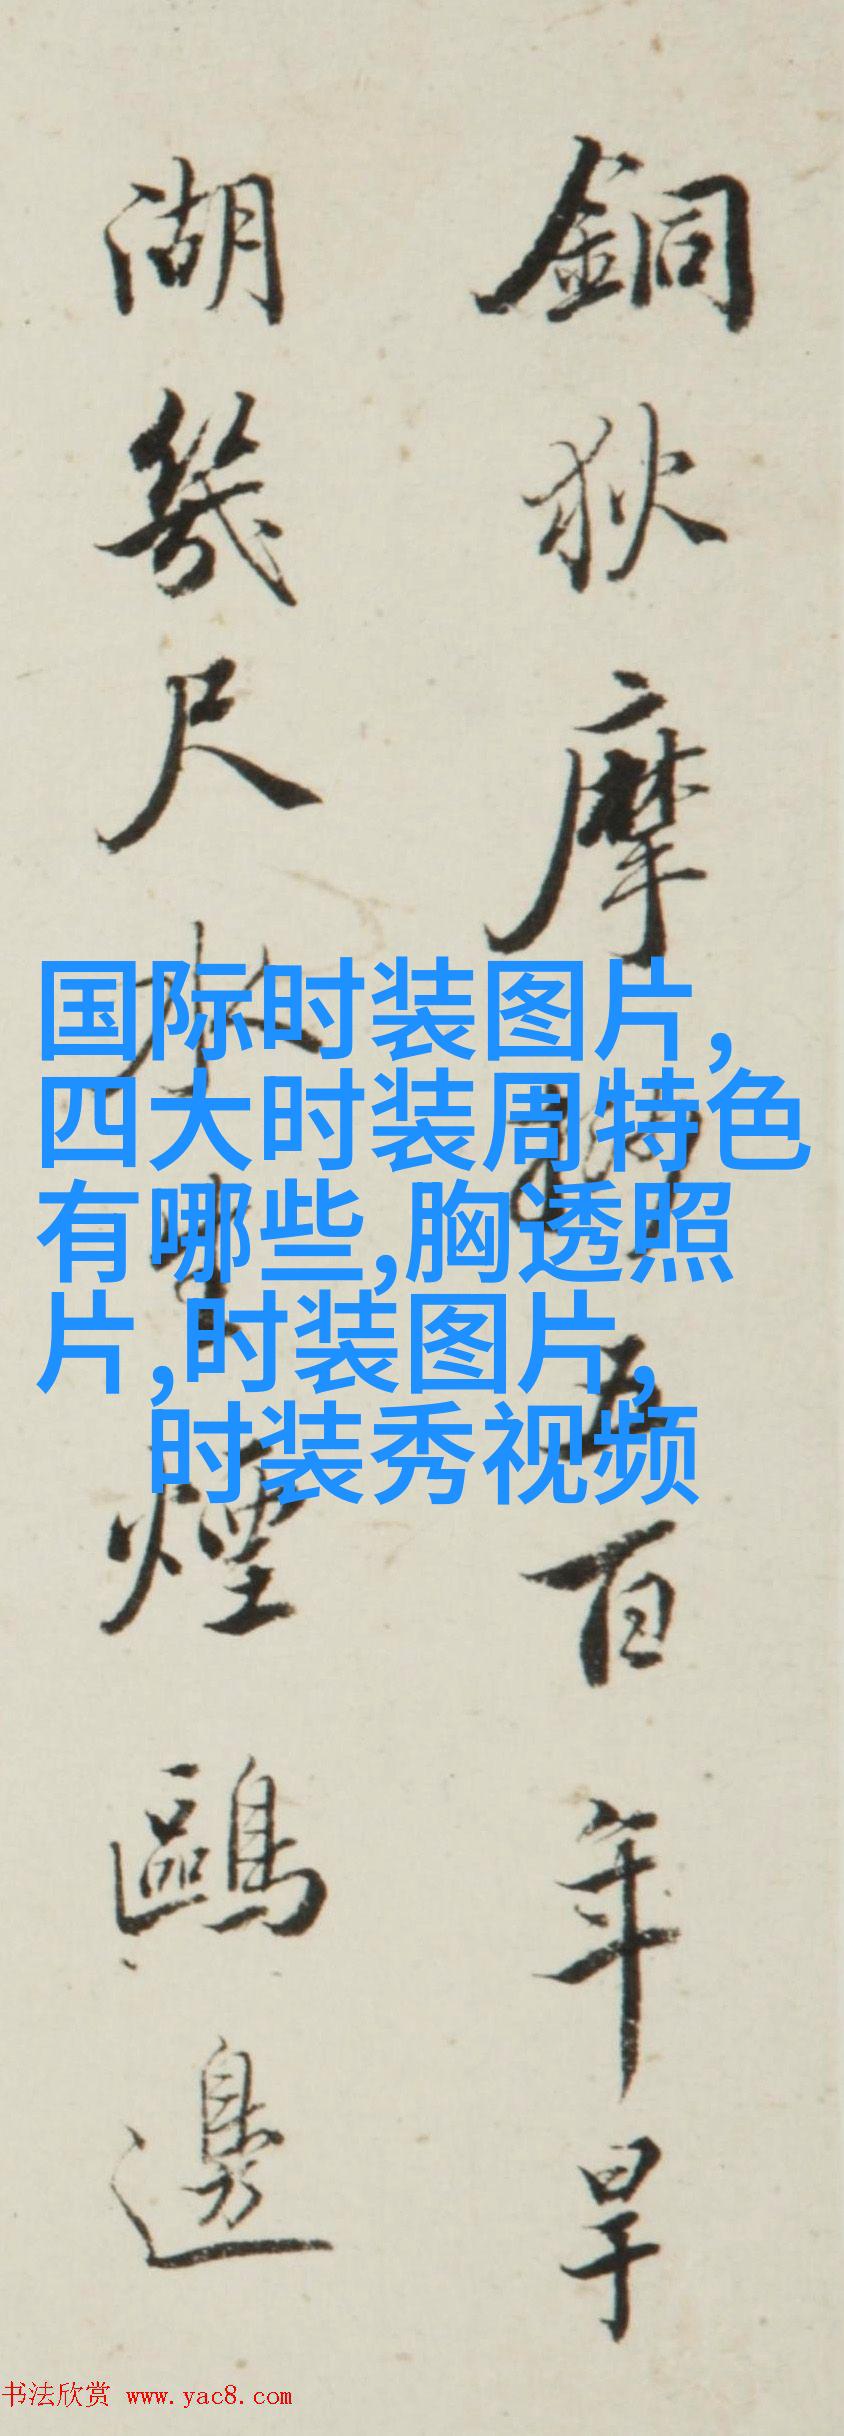 銅狄摩挲五百年旱
湖幾尺水生煙鷗邊
国际时装图片,
四大时装周特色
有哪些,胸透照
片,时装图片,
时装秀视频
书法欣赏 www.yac8.com